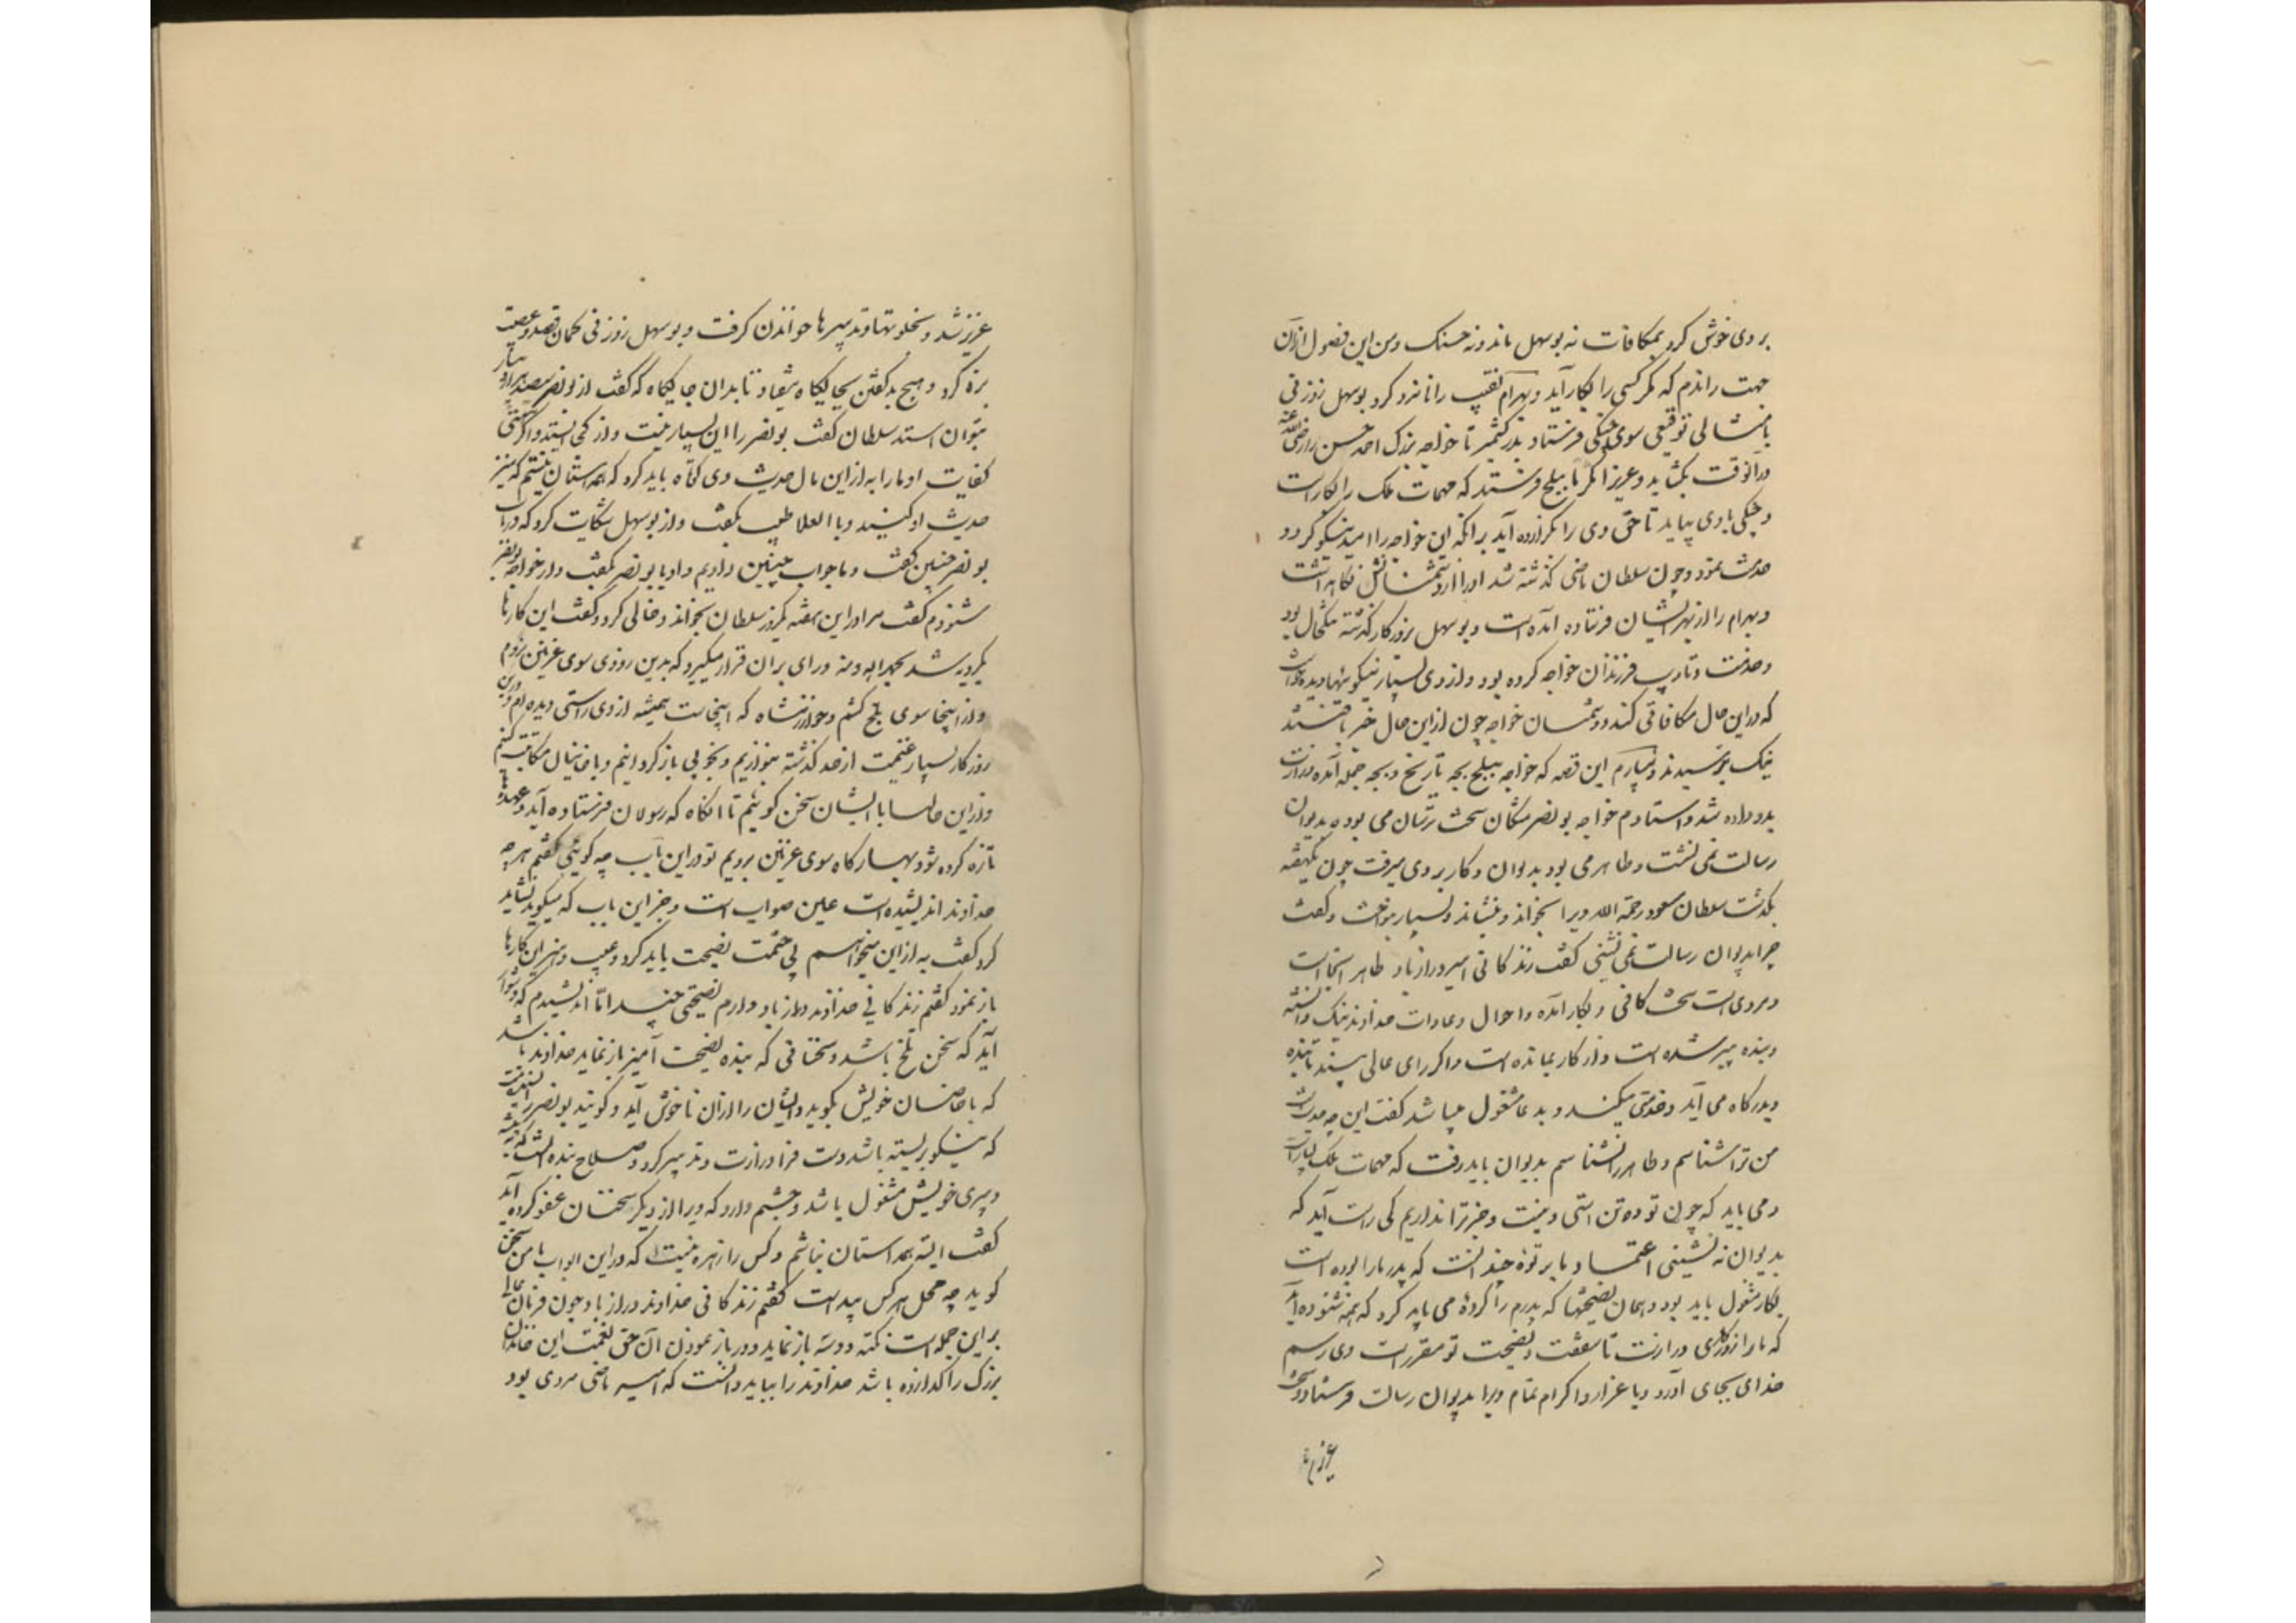 بر وی خوش کرد بمکافات نه بوسهل ماند و نه حسنک و من این فصول از آن
جهت راندم که مگر کسی را بکار آید و بهرام نقیب را نامزد کرد بوسهل زوزنی
با مثالی توقیعی سوی جنکی فرستاد بدر کشمیر تا خواجه بزرک احمد حسن را رضی الله عنه
در آنوقت بکشاید و عزیزا مکرما ببلخ فرستد که مهمات ملک را بکار است
و جنکی باوی بیاید تا حق وی را گزارده آید برانکه این خواجه را امید نیکو کرد و
خدمت نمود و چون سلطان ماضی گذشته شد او را از دشمنانش نگاهداشت
و بهرام را از بهر ایشان فرستاده آمده است و بوسهل بروزگار گذشته تنگحال بود
و خدمت و تادیب فرزندان خواجه کرده بود و از وی بسیار نیکوئیها دیده خواست
که در این حال مکافاتی کند و دشمنان خواجه چون از این حال خبر یافتند
نیک بترسیدند و بیارم این قصه که خواجه ببلخ بچه تاریخ و بچه جمله آمد و وزارت
بدو داده شد و استادم خواجه بونصر مشکان سخت ترسان می بود و بدیوان
رسالت نمی نشست و طاهر می بود بدیوان و کار بر وی میرفت چون یکهفته
بگذشت سلطان مسعود رحمة الله ویرا بخواند و بنشاند و بسیار بنواخت و گفت
چرا بدیوان رسالت نمی نشینی گفت زندگانی امیر دراز باد طاهر آنجا است
و مردی است سخت کافی و بکار آمده و احوال و عادات خداوند نیک دانسته
و بنده پیر شده است و از کار بمانده است و اگر رای عالی بیند تا بنده
بدرگاه می آید و خدمتی میکند و بدعا مشغول میباشد گفت این چه حدیث است
من ترا شناسم و طاهر را نشناسم بدیوان باید رفت که مهمات ملک بسیار است
و می باید که چون تو ده تن استی و نیست و جز ترا نداریم کی راست آید که
بدیوان نه نشینی اعتماد ما بر تو ده چندانست که پدر ما را بوده است
بکار مشغول باید بود و همان نصیحتها که پدرم را کردهٔ می باید کرد که همه شنوده آید
که ما را روزگاری دراز است تا شفقت و نصیحت تو مقرر است وی رسم
خدای بجای آورد و با عزاز و اکرام تمام ویرا بدیوان رسالت فرستاد و سخت
عزیز شد
عزیز شد و بخلوتها و تدبیرها خواندن گرفت و بوسهل زوزنی کمان قصد و عصبیت
بزه کرد و هیچ بد گفتن بجایگاه نیفتاد تا بدان جایگاه که گفت از بونصر سیصد هزار دینار
بتوان استد سلطان گفت بونصر را این بسیار نیست و از کجا استد و اگر هستی
کفایت او ما را به از این مال حدیث وی کوتاه باید کرد که همداستان نیستم که نیز
حدیث او کنید و با العلا طبیب بگفت و از بوسهل شکایت کرد که در باب
بونصر چنین گفت و ما جواب چنین دادیم و او با بونصر بگفت و از خواجه بونصر
شنودم گفت مرا در این هفته یکروز سلطان بخواند و خالی کرد و گفت این کارها
یکرویه شد بحمد الله و منه و رای بران قرار میگیرد که بدین زودی سوی غزنین نرویم
و از اینجا سوی بلخ کشیم و خوارزمشاه که اینجاست همیشه از وی راستی دیده ام و درین
روزگار بسیار غنیمت از حد گذشته بنوازیم و بخوبی باز گردانیم و با خانیان مکاتبت کنیم
و از این حالها با ایشان سخن گوئیم تا انگاه که رسولان فرستاده آید و عهدها
تازه کرده شود و بهارگاه سوی غزنین برویم تو در این باب چه گوئی گفتم هر چه
خداوند اندیشیده است عین صواب است و جز این باب که میگوید نشاید
کرد گفت به از این میخواهم بی حشمت نصیحت باید کرد و عیب و هنر این کارها
باز نمود گفتم زندگانی خداوند دراز باد دارم نصیحتی چند اما اندیشیدم که دشوار
آید که سخن تلخ باشد و سخنانی که بنده نصیحت آمیز باز نماید خداوند باشد
که با خاصان خویش بگوید و ایشان را از آن ناخوش آید و گویند بونصر را بسنده نیست
که نیکو بزیسته باشد دست فرا وزارت و تدبیر کرد و صلاح بنده آنست که به پیشه
دبیری خویش مشغول باشد و چشم دارد که ویرا از دیگر سخنان عفو کرده آید
گفت البته همداستان نباشم و کس را زهره نیست که در این ابواب با من سخن
گوید چه محل هر کس پیداست گفتم زندگانی خداوند دراز باد چون فرمان عالی
بر این جمله است نکته دو سه باز نماید و در باز نمودن آن حق نعمت این خاندان
بزرک را گذارده باشد خداوند را بباید دانست که امیر ماضی مردی بود